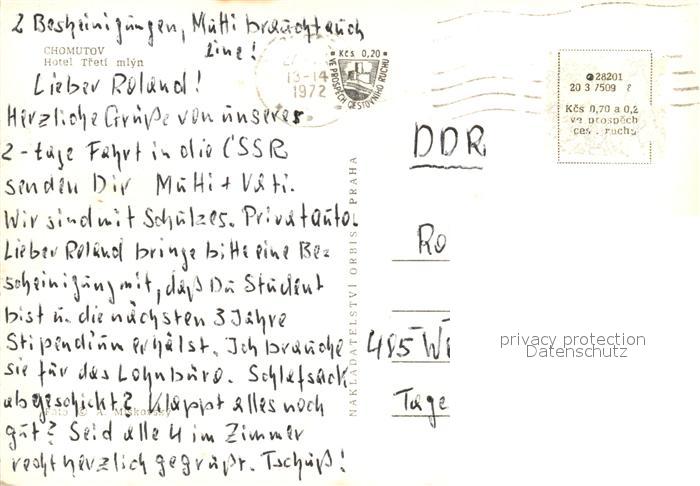 2 Bescheinigungen, Mutti braucht auch
eine!
CHOMUTOV
Hotel Třetí mlýn
13-14
1972
Kčs 0,20
VE PROSPĚCH CESTOVNÍHO RUCHU
28201
20 3 7509
Kčs 0,70 a 0,2
ve prospěch
ces. ruchu
Lieber Roland!
Herzliche Grüße von unserer
2-tage Fahrt in die ČSSR
senden Dir Mutti + Vati.
Wir sind mit Schulzes. Privatauto.
Lieber Roland bringe bitte eine Be=
scheinigung mit, daß Du Student
bist u. die nächsten 3 Jahre
Stipendium erhälst. Ich brauche
sie für das Lohnbüro. Schlafsack
abgeschickt? Klappt alles noch
gut? Seid alle 4 im Zimmer
recht herzlich gegrüßt. Tschüß!
Foto © A.
NAKLADATELSTVÍ ORBIS PRAHA
DDR
Ro
485 Wi
Tage
privacy protection
Datenschutz